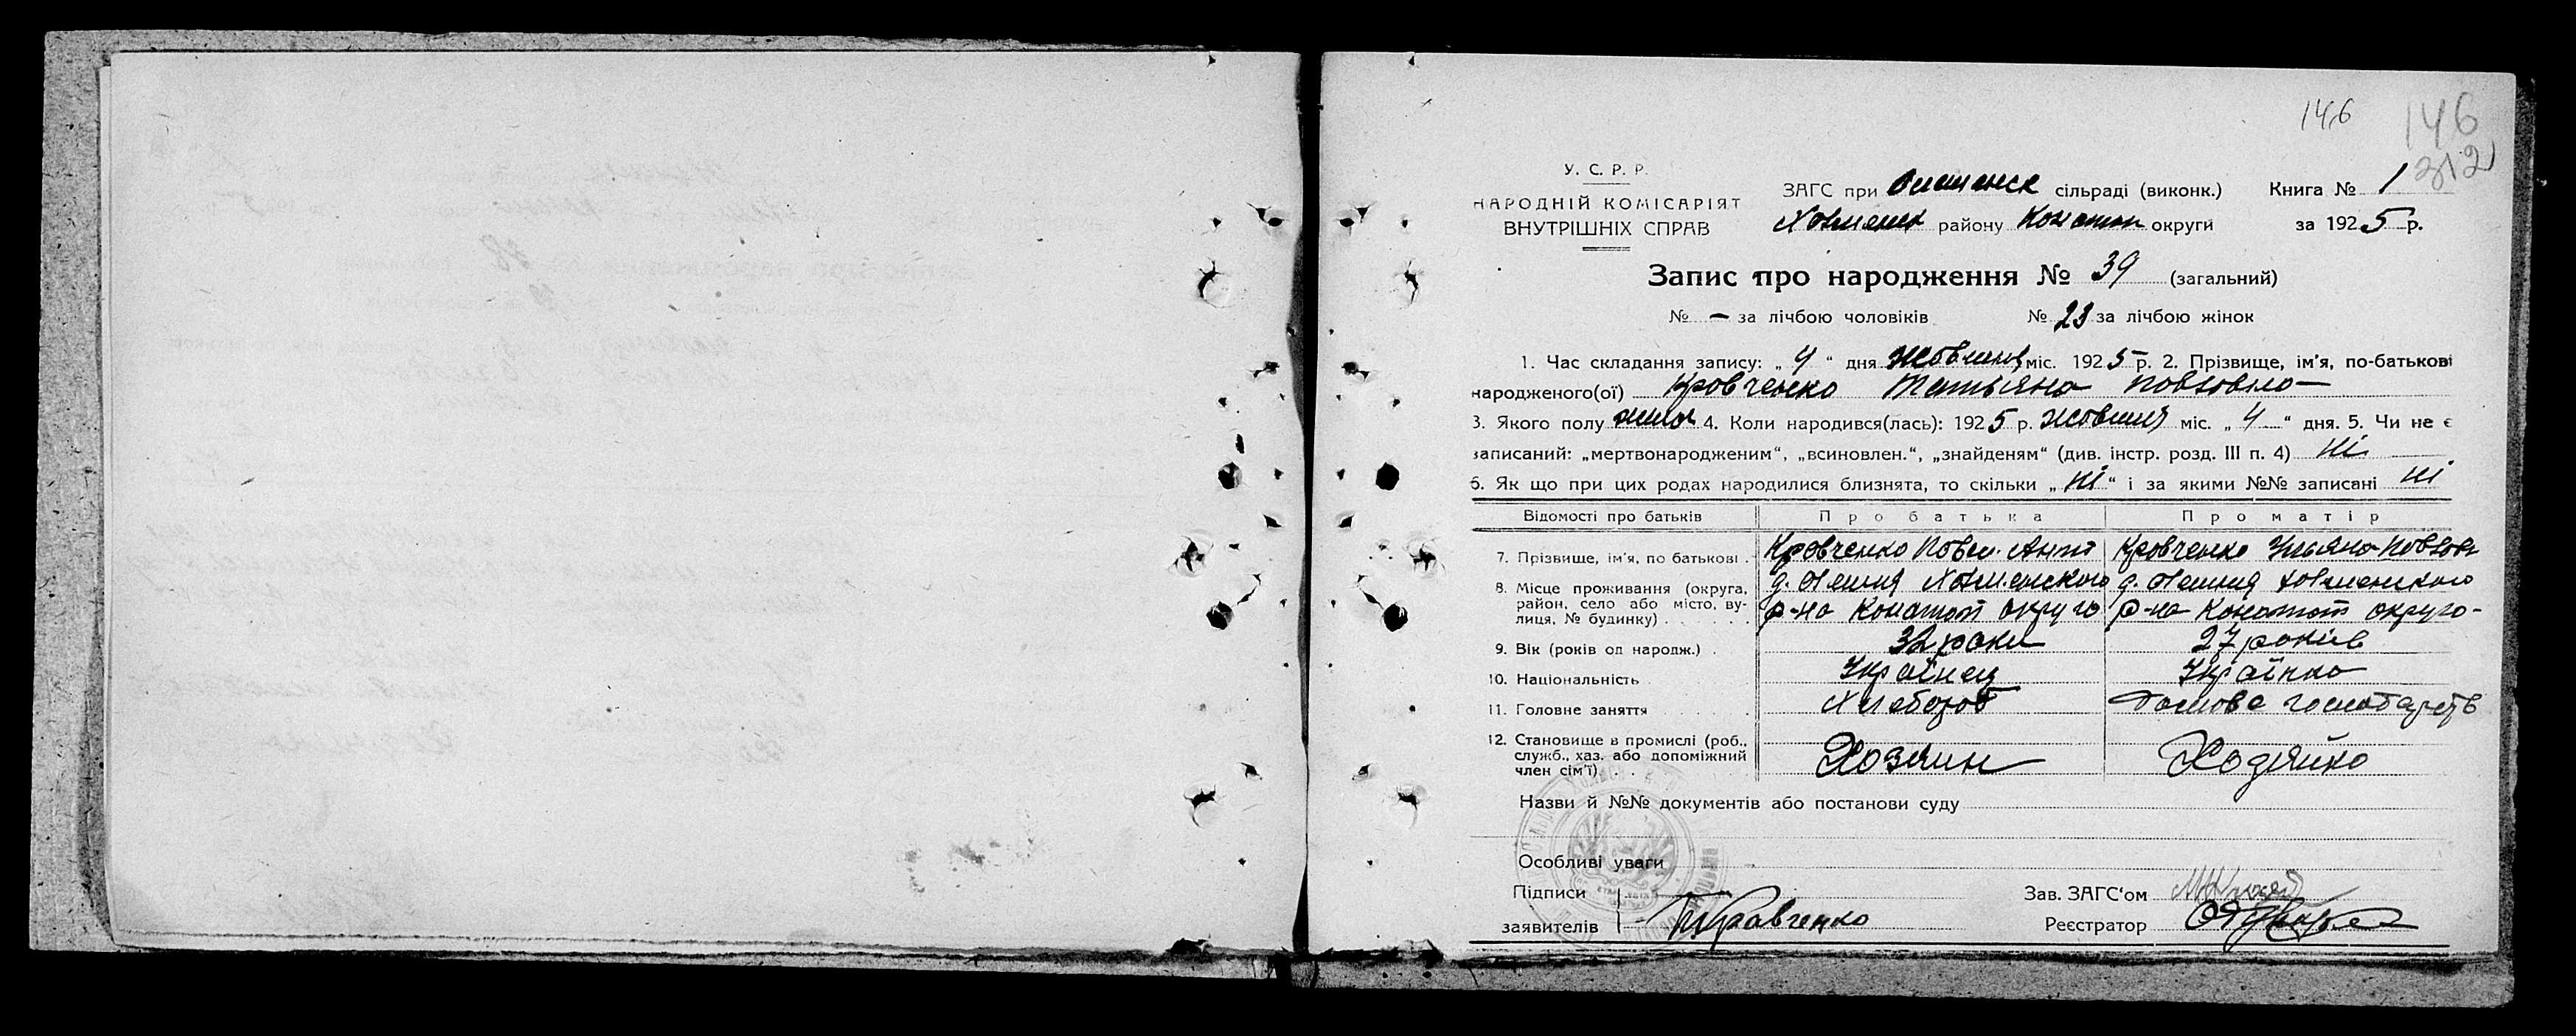 146
146
312
У. С. Р. Р.
НАРОДНІЙ КОМІСАРІЯТ
ВНУТРІШНІХ СПРАВ
ЗАГС при сільраді (виконк.) Книга № 1
району Конотоп округи за 1925 р.
Запис про народження № 39 (загальний)
№ – за лічбою чоловіків № 23 за лічбою жінок
1. Час складання запису: „ 4 “ дня Жовтня міс. 1925 р. 2. Прізвище, ім'я, по-батькові
народженого(ої) Кровченко Татьяна Повловна
3. Якого полу 4. Коли народився(лась): 1925 р. Жовтня міс. „ 4 “ дня. 5. Чи не є
записаний: „мертвонародженим“, „всиновлен.“, „знайденям“ (див. інстр. розд. III п. 4) Ні
6. Як що при цих родах народилися близнята, то скільки „ Ні “ і за якими №№ записані Ні
Відомості про батьків Про батька Про матір
7. Прізвище, ім'я, по батькові . Кровченко Повел Кровченко Ульяна Повлов
8. Місце проживання (округа, район, село або місто, вулиця, № будинку) . . . . . .
р-на Конотоп округа р-на Конотоп округа-
9. Вік (років од народж.) . 32 роки 27 років
10. Національність Українец Українко
11. Головне заняття Хлебороб Домове господарств
12. Становище в промислі (роб., служб., хаз. або допоміжний член сім'ї) . . Хозяин Ходяйко
Назви й №№ документів або постанови суду
Особливі уваги
Підписи Зав. ЗАГС'ом
заявителів Кравченко Реєстратор